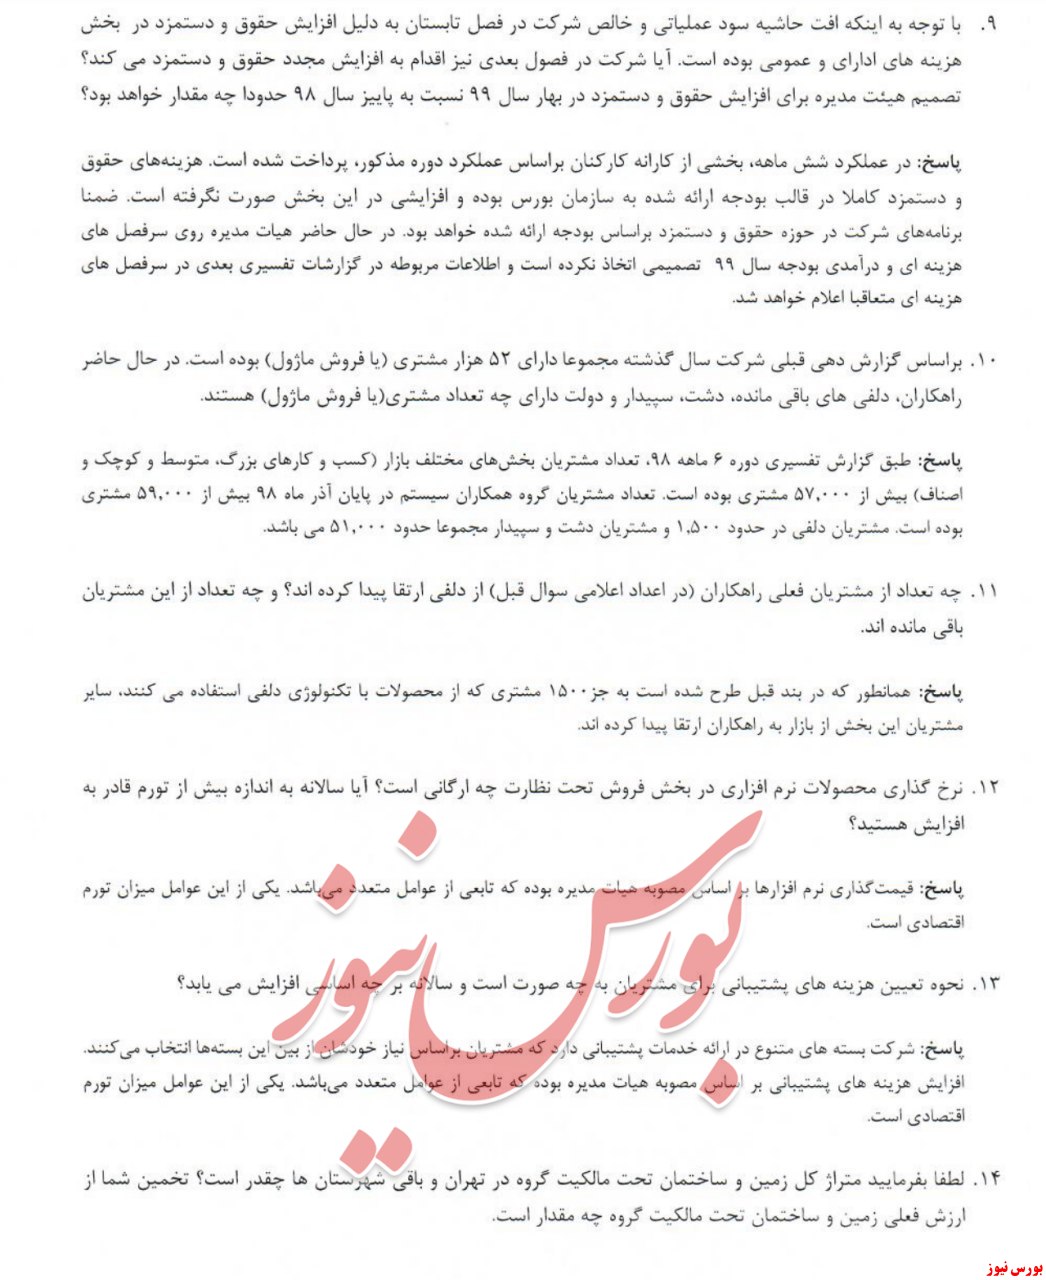 ۹. با توجه به اینکه افت حاشیه سود عملیاتی و خالص شرکت در فصل تابستان به دلیل افزایش حقوق و دستمزد در بخش
هزینه های ادارای و عمومی بوده است. آیا شرکت در فصول بعدی نیز اقدام به افزایش مجدد حقوق و دستمزد می کند؟
تصمیم هیئت مدیره برای افزایش حقوق و دستمزد در بهار سال ۹۹ نسبت به پاییز سال ۹۸ حدودا چه مقدار خواهد بود؟
پاسخ: در عملکرد شش ماهه، بخشی از کارانه کارکنان براساس عملکرد دوره مذکور، پرداخت شده است. هزینه‌های حقوق
و دستمزد کاملا در قالب بودجه ارائه شده به سازمان بورس بوده و افزایشی در این بخش صورت نگرفته است. ضمنا
برنامه‌های شرکت در حوزه حقوق و دستمزد براساس بودجه ارائه شده خواهد بود. در حال حاضر هیات مدیره روی سرفصل های
هزینه ای و درآمدی بودجه سال ۹۹ تصمیمی اتخاذ نکرده است و اطلاعات مربوطه در گزارشات تفسیری بعدی در سرفصل های
هزینه ای متعاقبا اعلام خواهد شد.
۱۰. براساس گزارش دهی قبلی شرکت سال گذشته مجموعا دارای ۵۲ هزار مشتری (یا فروش ماژول) بوده است. در حال حاضر
راهکاران، دلفی های باقی مانده، دشت، سپیدار و دولت دارای چه تعداد مشتری(یا فروش ماژول) هستند.
پاسخ: طبق گزارش تفسیری دوره ۶ ماهه ۹۸، تعداد مشتریان بخش‌های مختلف بازار (کسب و کارهای بزرگ، متوسط و کوچک و
اصناف) بیش از ۵۷,۰۰۰ مشتری بوده است. تعداد مشتریان گروه همکاران سیستم در پایان آذر ماه ۹۸ بیش از ۵۹,۰۰۰ مشتری
بوده است. مشتریان دلفی در حدود ۱,۵۰۰ و مشتریان دشت و سپیدار مجموعا حدود ۵۱,۰۰۰ می باشد.
۱۱. چه تعداد از مشتریان فعلی راهکاران (در اعداد اعلامی سوال قبل) از دلفی ارتقا پیدا کرده اند؟ و چه تعداد از این مشتریان
باقی مانده اند.
پاسخ: همانطور که در بند قبل طرح شده است به جز۱۵۰۰ مشتری که از محصولات با تکنولوژی دلفی استفاده می کنند، سایر
مشتریان این بخش از بازار به راهکاران ارتقا پیدا کرده اند.
۱۲. نرخ گذاری محصولات نرم افزاری در بخش فروش تحت نظارت چه ارگانی است؟ آیا سالانه به اندازه بیش از تورم قادر به
افزایش هستید؟
پاسخ: قیمت‌گذاری نرم افزارها بر اساس مصوبه هیات مدیره بوده که تابعی از عوامل متعدد می‌باشد. یکی از این عوامل میزان تورم
اقتصادی است.
۱۳. نحوه تعیین هزینه های پشتیبانی برای مشتریان به چه صورت است و سالانه بر چه اساسی افزایش می یابد؟
پاسخ: شرکت بسته های متنوع در ارائه خدمات پشتیبانی دارد که مشتریان براساس نیاز خودشان از بین این بسته‌ها انتخاب می‌کنند.
افزایش هزینه های پشتیبانی بر اساس مصوبه هیات مدیره بوده که تابعی از عوامل متعدد می‌باشد. یکی از این عوامل میزان تورم
اقتصادی است.
۱۴. لطفا بفرمایید متراژ کل زمین و ساختمان تحت مالکیت گروه در تهران و باقی شهرستان ها چقدر است؟ تخمین شما از
ارزش فعلی زمین و ساختمان تحت مالکیت گروه چه مقدار است.
بورس نیوز
بورس نیوز